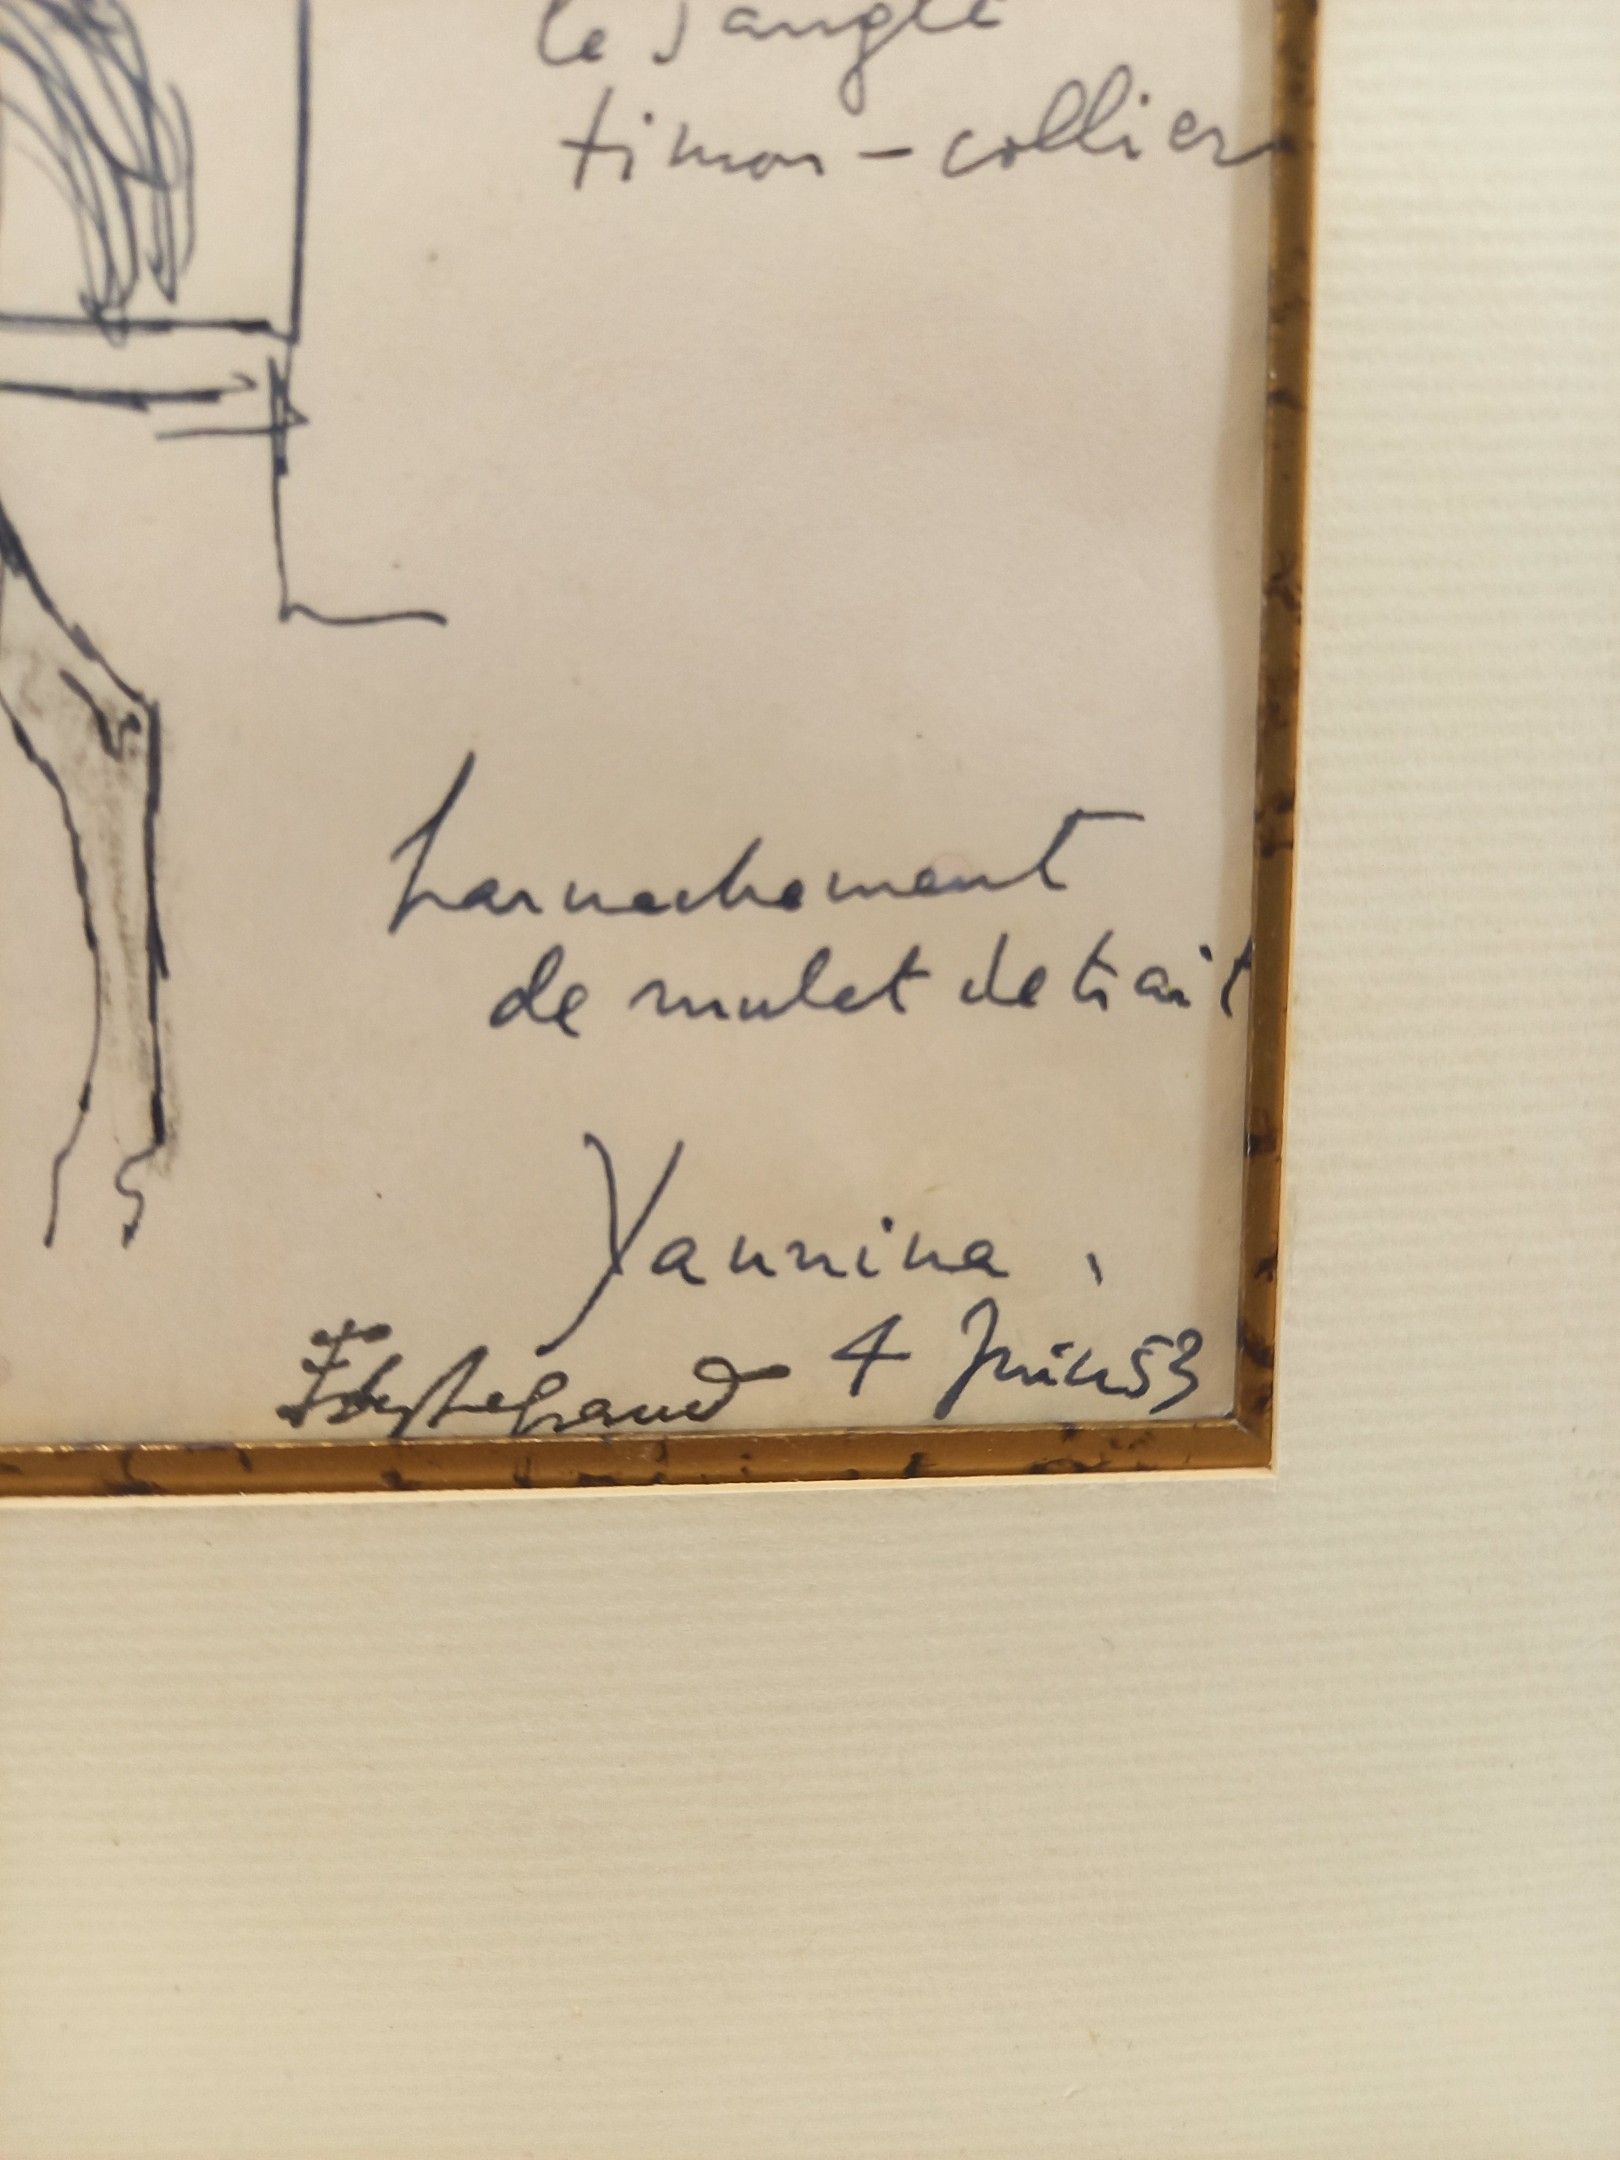 le sangle
timon - collier
harnachement
de mulet de trait
Yannina,
Edy Legrand 4 Juin 53